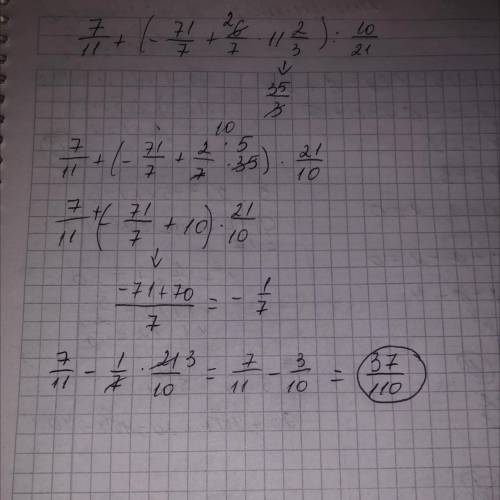 7/11 + (- 71/7 + 6/7 2 · 11 2/3) : 10/21
↓
35/3
10
7/11 + (- 71/7 + 2/7 · 35 5) · 21/10
7/11 + (- 71/7 + 10) · 21/10
↓
(-71+70)/7 = - 1/7
7/11 - 1/7 · 21 3/10 = 7/11 - 3/10 = 37/110